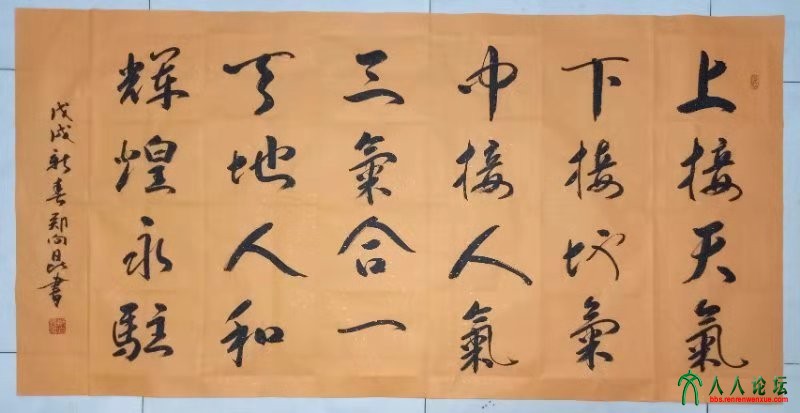 上接天氣
下接地氣
中接人氣
三氣合一
天地人和
輝煌永駐
戊戌新春郑向昆書
人人论坛
bbs.renrenwenxue.com